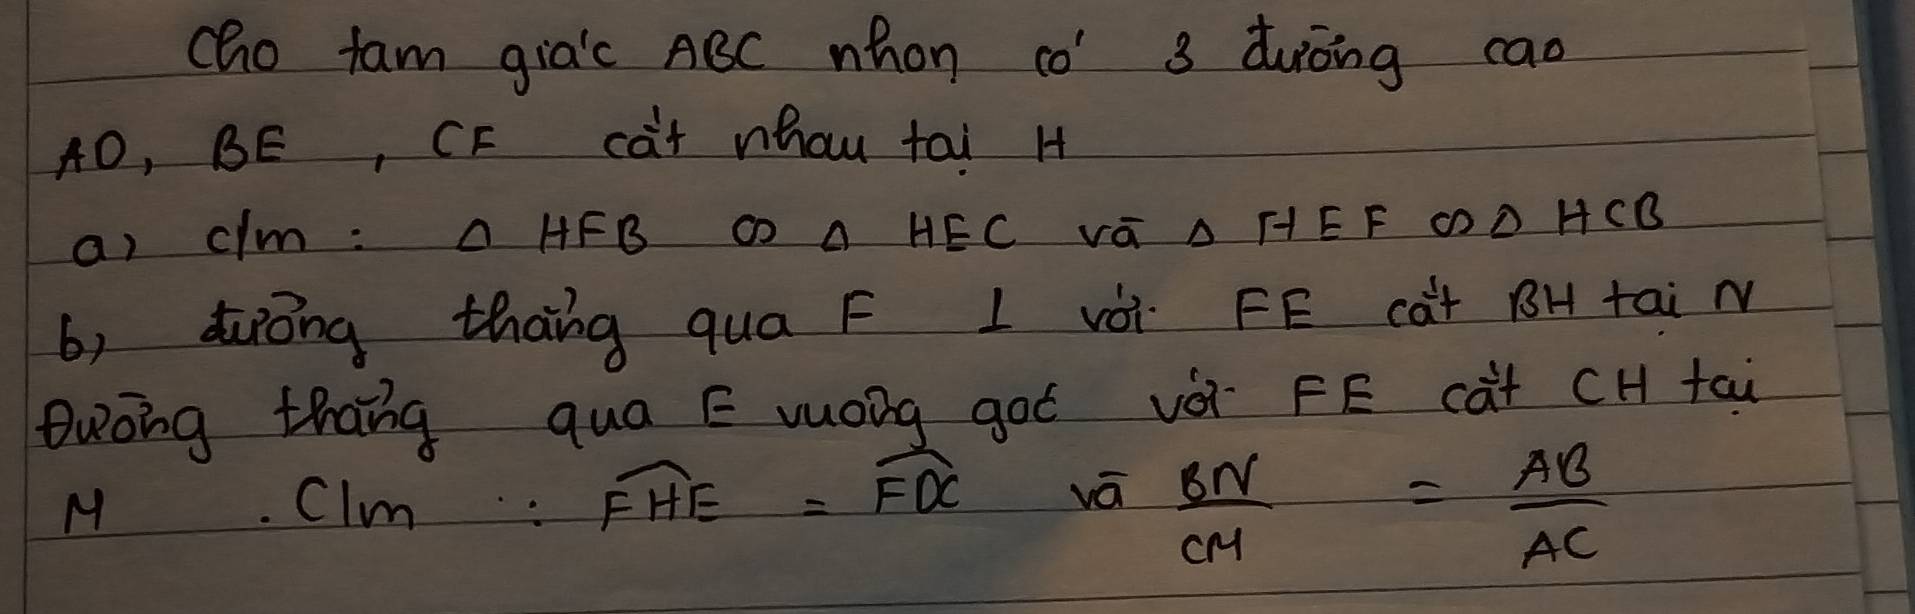 Cho tam giác ABC nhọn có 3 đường cao
AD, BE , CF cắt nhau tại H
a) c/m : Δ HFB ∽ Δ HEC và Δ HEF ∽ Δ HCB
b) đường thẳng qua F ⊥ với FE cắt BH tại N
Đường thẳng qua E vuông góc với FE cắt CH tại
M . C/m : \widehat{FHE} = \widehat{FDC} và \frac{BN}{CM} = \frac{AB}{AC}